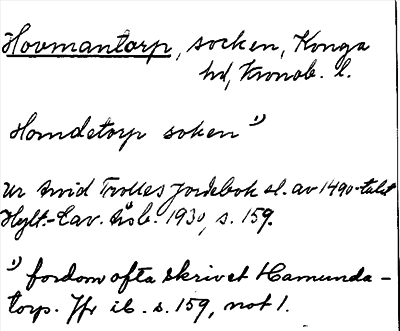 Hovmantorp, socken, Konga
hd, Kronob. l.
Homdetorp soken 1)
Ur Arvid Trolles Jordebok sl. av 1490-talet
Hylt.-Cav. Årsb. 1930, s. 159.
1) fordom ofta skrivet Hamunda-
torp. Jfr ib. s. 159, not 1.